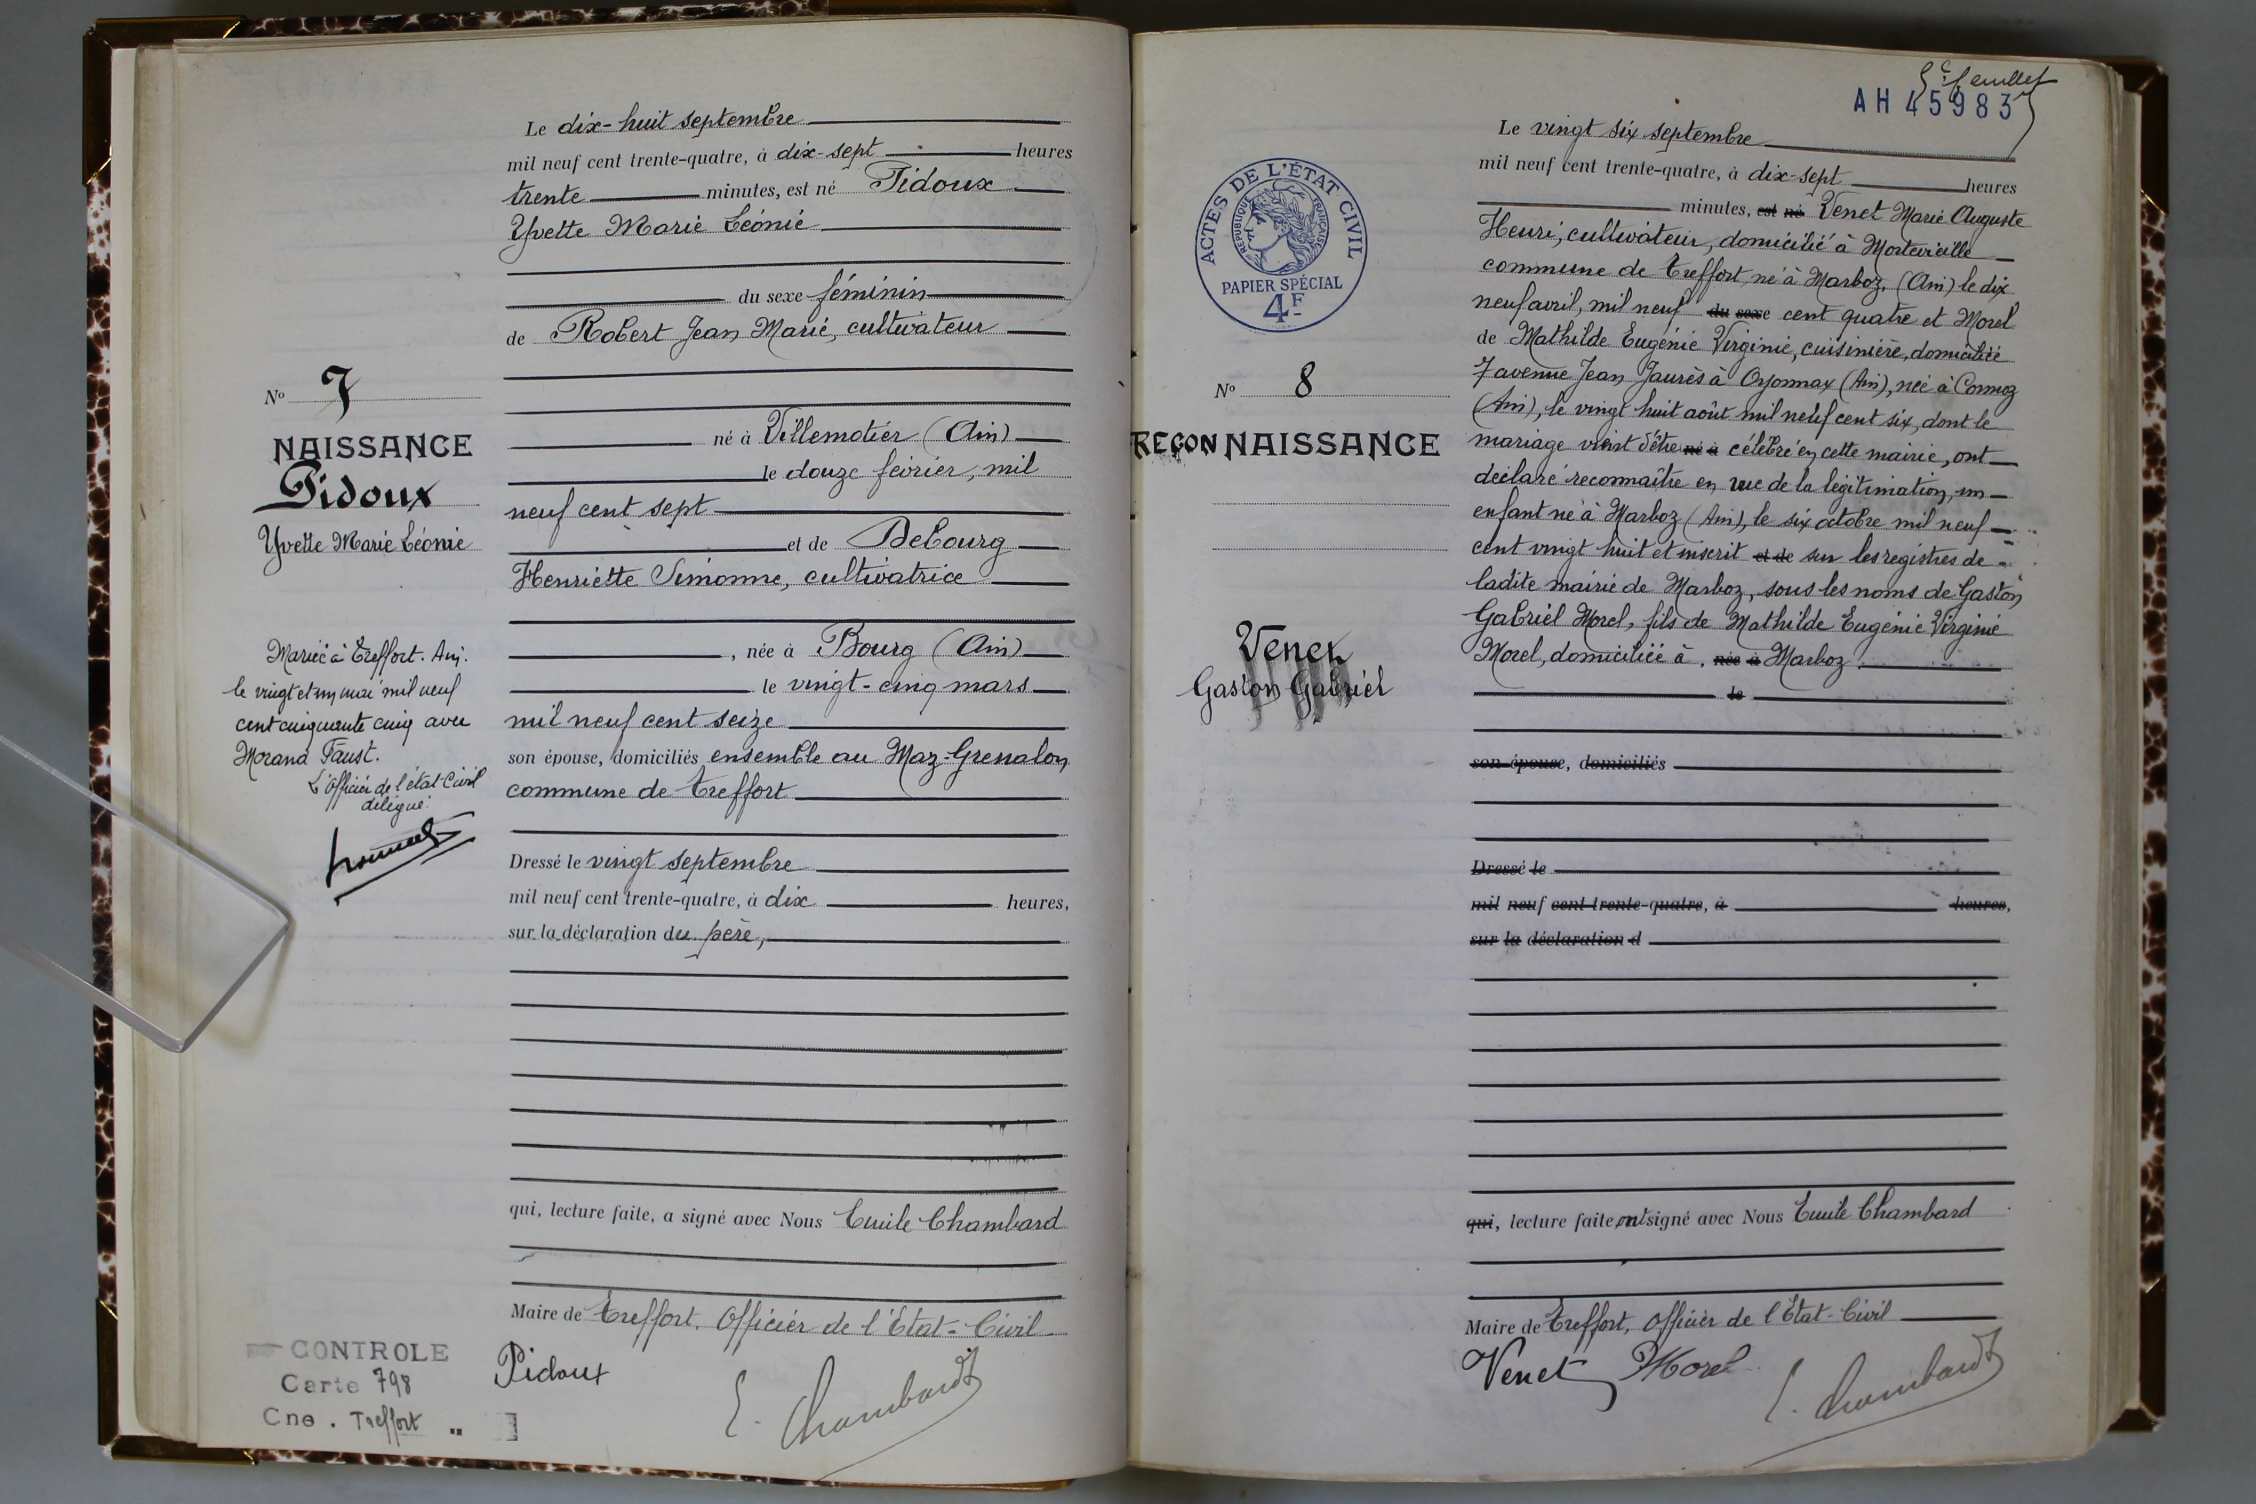 Le dix-huit septembre
mil neuf cent trente-quatre, à dix-sept heures
trente minutes, est né Pidoux
Yvette Marie Léonie
du sexe féminin
de Robert Jean Marie, cultivateur
né à Villemotier (Ain)
le douze février, mil
neuf cent sept
et de Debourg
Henriette Simonne, cultivatrice
, née à Bourg (Ain)
le vingt-cinq mars
mil neuf cent seize
son épouse, domiciliés ensemble au Maz-Grenalon
commune de Treffort
Dressé le vingt septembre
mil neuf cent trente-quatre, à dix heures,
sur la déclaration du père,
qui, lecture faite, a signé avec Nous Emile Chambard
Maire de Treffort, Officier de l'Etat-Civil
Pidoux
E. Chambard
No 7
NAISSANCE
Pidoux
Yvette Marie Léonie
Mariée à Treffort. Ain.
le vingt et un mai mil neuf
cent cinquante cinq avec
Morand Faust.
L'Officier de l'état Civil
délégué:
CONTROLE
Carte 798
Cne. Treffort
5e feuillet
AH 45983
ACTES DE L'ÉTAT CIVIL
RÉPUBLIQUE FRANÇAISE
PAPIER SPÉCIAL
4F
No 8
RECONNAISSANCE
Venet
Gaston Gabriel
Le vingt six septembre
mil neuf cent trente-quatre, à dix-sept heures
minutes, est né Venet Marie Auguste
Henri, cultivateur, domicilié à Montevieille
commune de Treffort, né à Marboz, (Ain) le dix
neuf avril, mil neuf du sexe cent quatre et Morel
de Mathilde Eugénie Virginie, cuisinière, domiciliée
7 avenue Jean Jaurès à Oyonnax (Ain), née à Cormoz
(Ain), le vingt huit août mil neuf cent six, dont le
mariage vient d'être né à célébré en cette mairie, ont
déclaré reconnaître en vue de la légitimation, un
enfant né à Marboz (Ain), le six octobre mil neuf
cent vingt huit et inscrit et de sur les registres de
ladite mairie de Marboz, sous les noms de Gaston
Gabriel Morel, fils de Mathilde Eugénie Virginie
Morel, domiciliée à , née à Marboz
le
son épouse, domiciliés
Dressé le
mil neuf cent trente-quatre, à heures,
sur la déclaration d
qui, lecture faite ont signé avec Nous Emile Chambard
Maire de Treffort, Officier de l'Etat-Civil
Venet Morel
E. Chambard